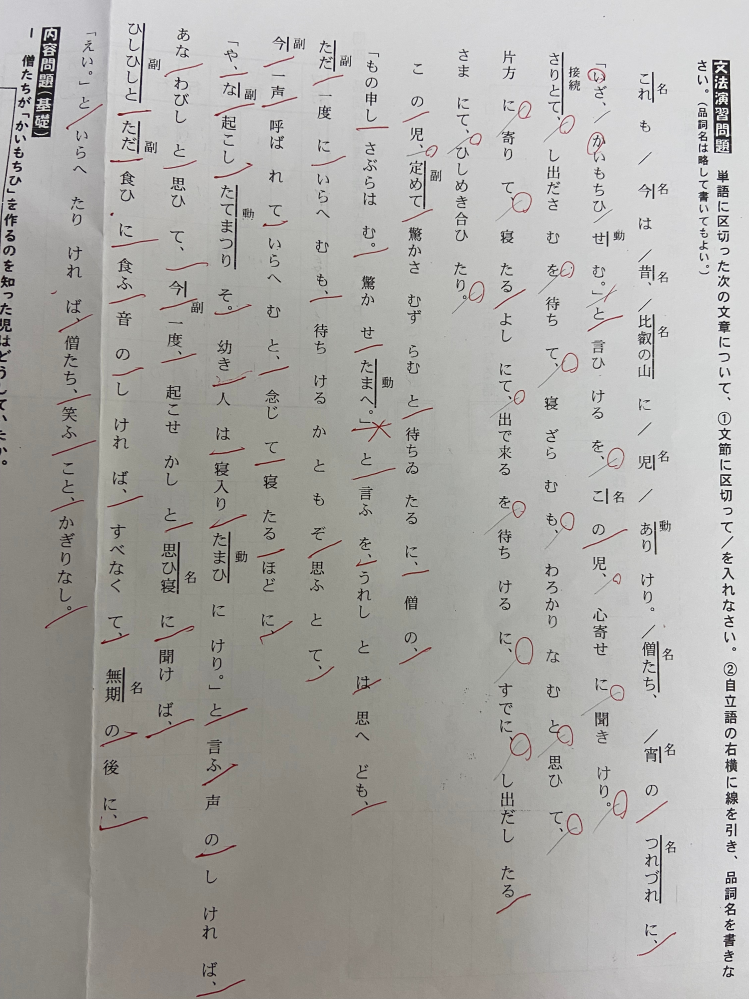 文法演習問題 単語に区切った次の文章について、①文節に区切って/を入れなさい。②自立語の右横に線を引き、品詞名を書きな
さい。(品詞名は略して書いてもよい。)
名 名 名 名 名 動 名 名 名
これ も / 今 は / 昔、/ 比叡の山 に / 児 / あり けり。/ 僧たち、/ 宵 の つれづれ に、
動 名
「いざ、/ かいもちひ / せ む。」/ と 言ひ ける を、こ の 児、心寄せ に 聞き けり。
接続
さりとて、し出ださ む を 待ち て、寝 ざら む も、わろかり な む と 思ひ て、
片方 に 寄り て、寝 たる よし にて、出で来る を 待ち ける に、すでに、し出だし たる
さま にて、ひしめき合ひ たり。
副
こ の 児、定めて 驚かさ むず らむ と 待ちゐ たる に、僧 の、
動
「もの申し さぶらは む。驚か せ たまへ。」と 言ふ を、うれし と は 思へ ども、
副
ただ 一度 に いらへ む も、待ち ける か と も ぞ 思ふ とて、
副
今 一声 呼ば れ て いらへ む と、念じ て 寝 たる ほど に、
副 動 動
「や、な 起こし たてまつり そ。幼き 人 は 寝入り たまひ に けり。」と 言ふ 声 の し けれ ば、
副 名
あな わびし と 思ひ て、今 一度、起こせ かし と 思ひ寝 に 聞け ば、
副 副 名
ひしひしと ただ 食ひ に 食ふ 音 の し けれ ば、すべなく て、無期 の 後 に、
「えい。」と いらへ たり けれ ば、僧たち、笑ふ こと、かぎりなし。
内容問題(基礎)
1 僧たちが「かいもちひ」を作るのを知った児はどうして、たか。